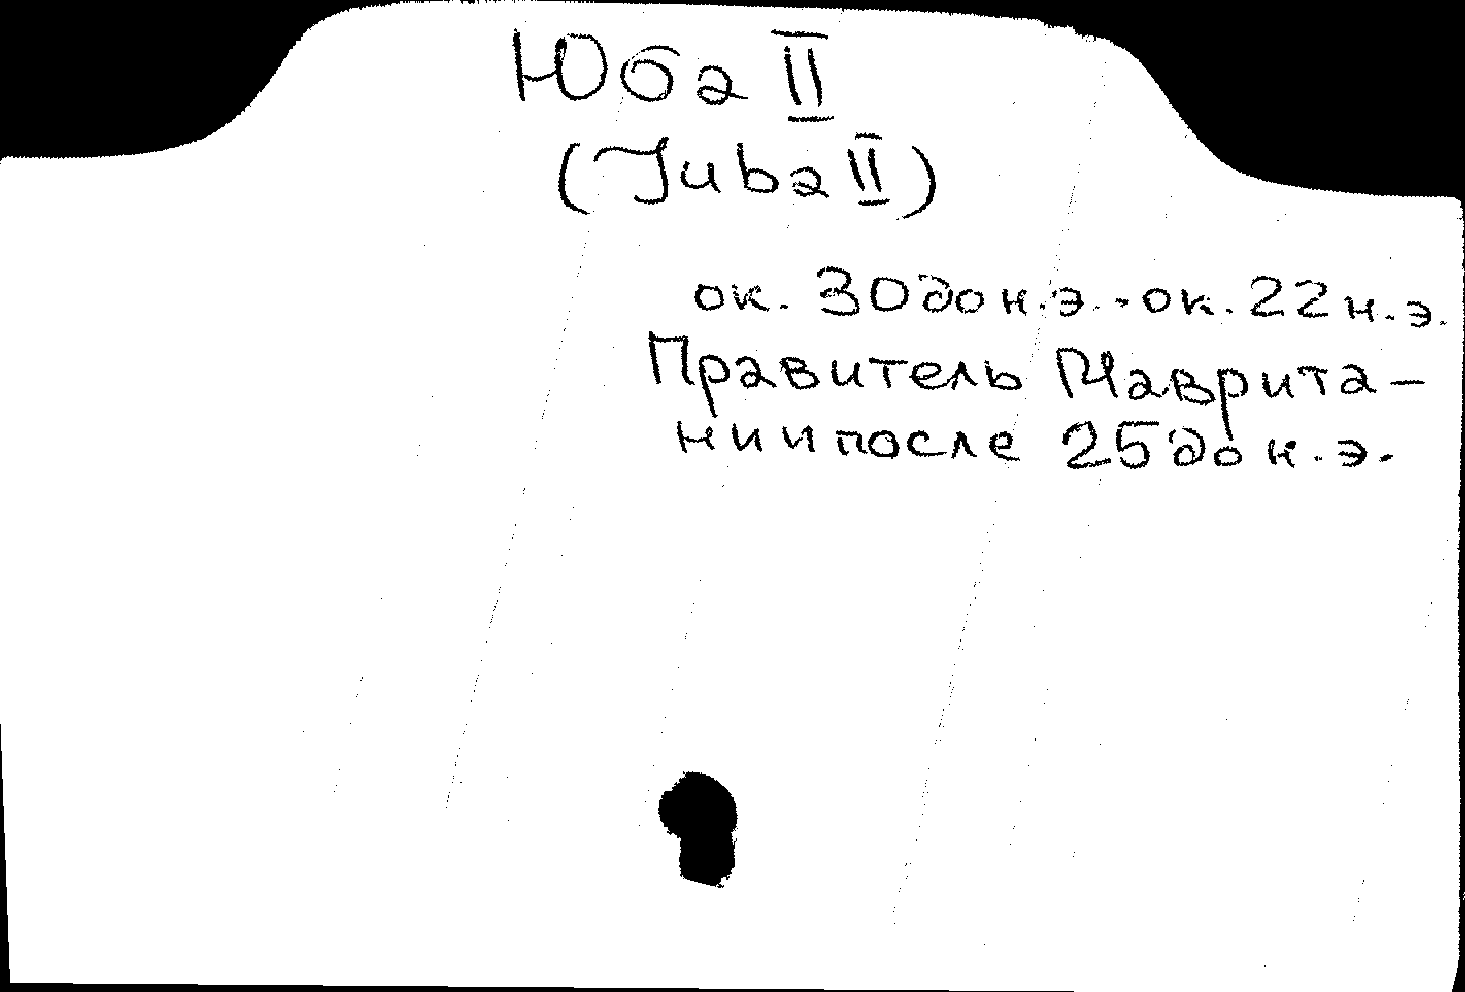 Юба II
(Juba II)
ок. 30 до н.э. - ок. 22 н.э.
Правитель Маврита-
нии после 25 до н.э.